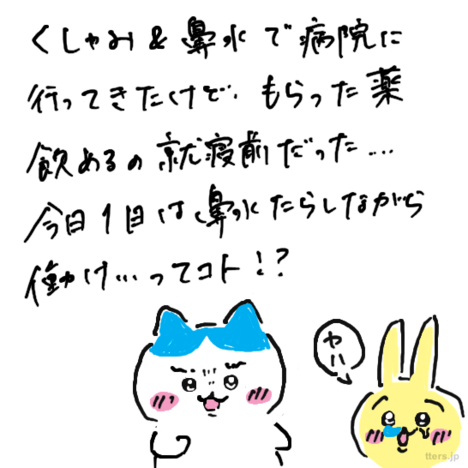 くしゃみ&鼻水で病院に
行ってきたけど、もらった薬
飲めるの就寝前だった...
今日1日は鼻水たらしながら
働け...ってコト!?
ヤハ
tters.jp